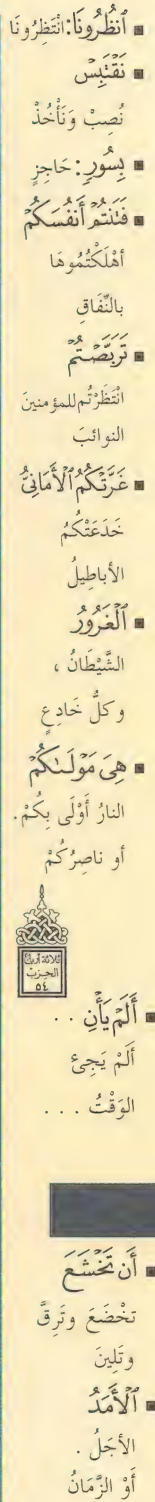 ■ ٱنظُرُونَا: انْتَظِرُونَا
■ نَقْتَبِسْ
نُصِبْ وَنَأْخُذْ
■ بِسُورٍ: حَاجِزٍ
■ فَتَنتُمْ أَنفُسَكُمْ
أَهْلَكْتُمُوهَا
بالنِّفَاقِ
■ تَرَبَّصْتُمْ
انْتَظَرْتُم للمؤمنينَ
النوائبَ
■ غَرَّتْكُمُ ٱلْأَمَانِيُّ
خَدَعَتْكُمُ
الأباطيلُ
■ ٱلْغَرُورُ
الشَّيْطَانُ ،
وكلُّ خَادِعٍ
■ هِىَ مَوْلَىٰكُمْ
النارُ أَوْلَى بِكُمْ.
أو ناصِرُكُمْ
ثلاثة أرباع
الحزب
٥٤
■ أَلَمْ يَأْنِ . .
أَلَمْ يَجِئ
الوَقْتُ . . .
■ أَن تَخْشَعَ
تخْضَعَ وتَرِقَّ
وتَلِينَ
■ ٱلْأَمَدُ
الأجَلُ .
أَوْ الزَّمَانُ